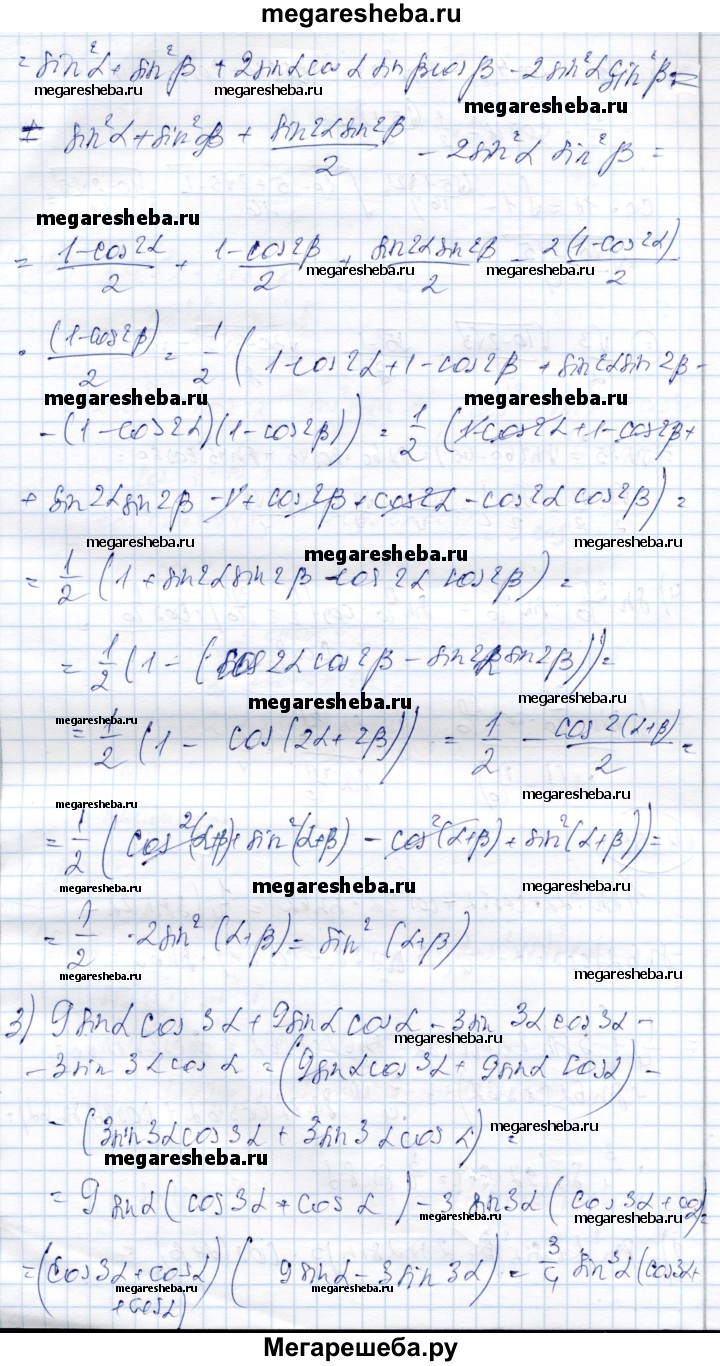 megaresheba.ru
= sin²α + sin²β + 2sinα cosα sinβ cosβ - 2sin²α sin²β =
megaresheba.ru megaresheba.ru megaresheba.ru
= sin²α + sin²β + sin2α sin2β / 2 - 2sin²α sin²β =
megaresheba.ru
= 1-cos2α / 2 + 1-cos2β / 2 + sin2α sin2β / 2 - 2(1-cos2α) / 2
megaresheba.ru megaresheba.ru megaresheba.ru
· (1-cos2β) / 2 = 1/2 (1-cos2α+1-cos2β + sin2α sin2β -
megaresheba.ru megaresheba.ru
- (1-cos2α)(1-cos2β)) = 1/2 (1-cos2α+1-cos2β+
+ sin2α sin2β - 1 + cos2β + cos2α - cos2α cos2β) =
megaresheba.ru megaresheba.ru megaresheba.ru
= 1/2 (1 + sin2α sin2β - cos2α cos2β) =
= 1/2 (1 - (cos2α cos2β - sin2α sin2β)) =
megaresheba.ru megaresheba.ru
megaresheba.ru
= 1/2 (1 - cos(2α+2β)) = 1/2 - cos2(α+β) / 2 =
megaresheba.ru megaresheba.ru
= 1/2 (cos²(α+β) + sin²(α+β) - cos²(α+β) + sin²(α+β)) =
megaresheba.ru megaresheba.ru megaresheba.ru
= 1/2 · 2sin²(α+β) = sin²(α+β)
megaresheba.ru megaresheba.ru
3) 9sinα cos3α + 9sinα cosα - 3sin3α cos3α -
megaresheba.ru
- 3sin3α cosα = (9sinα cos3α + 9sinα cosα) -
megaresheba.ru
- (3sin3α cos3α + 3sin3α cosα) =
megaresheba.ru megaresheba.ru
= 9sinα (cos3α + cosα) - 3sin3α (cos3α + cosα) =
megaresheba.ru megaresheba.ru
= (cos3α + cosα) (9sinα - 3sin3α) = 3/4 sin³α (cos3α +
+ cosα)
megaresheba.ru megaresheba.ru megaresheba.ru
Мегарешеба.ру